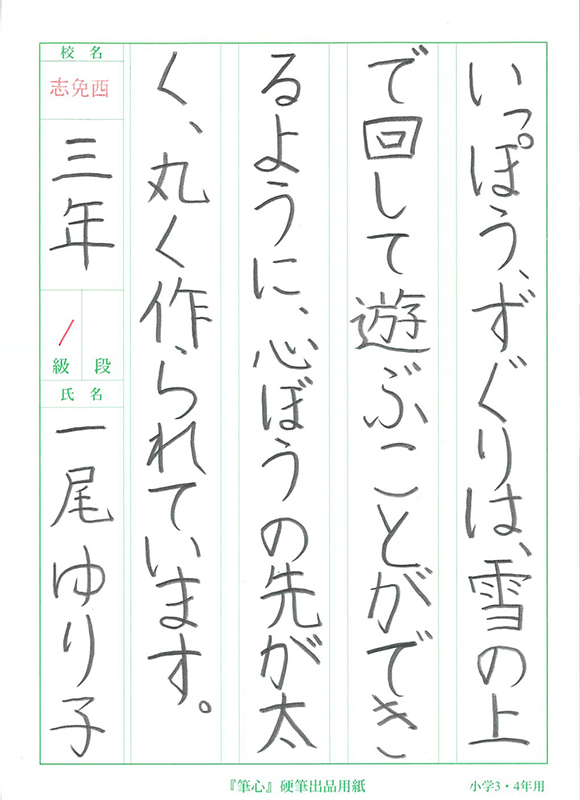 いっぽう、ずぐりは、雪の上
で回して遊ぶことができ
るように、心ぼうの先が太
く、丸く作られています。
校名
志免西
三年
段
級
/
氏名
一尾ゆり子
『筆心』硬筆出品用紙
小学3・4年用